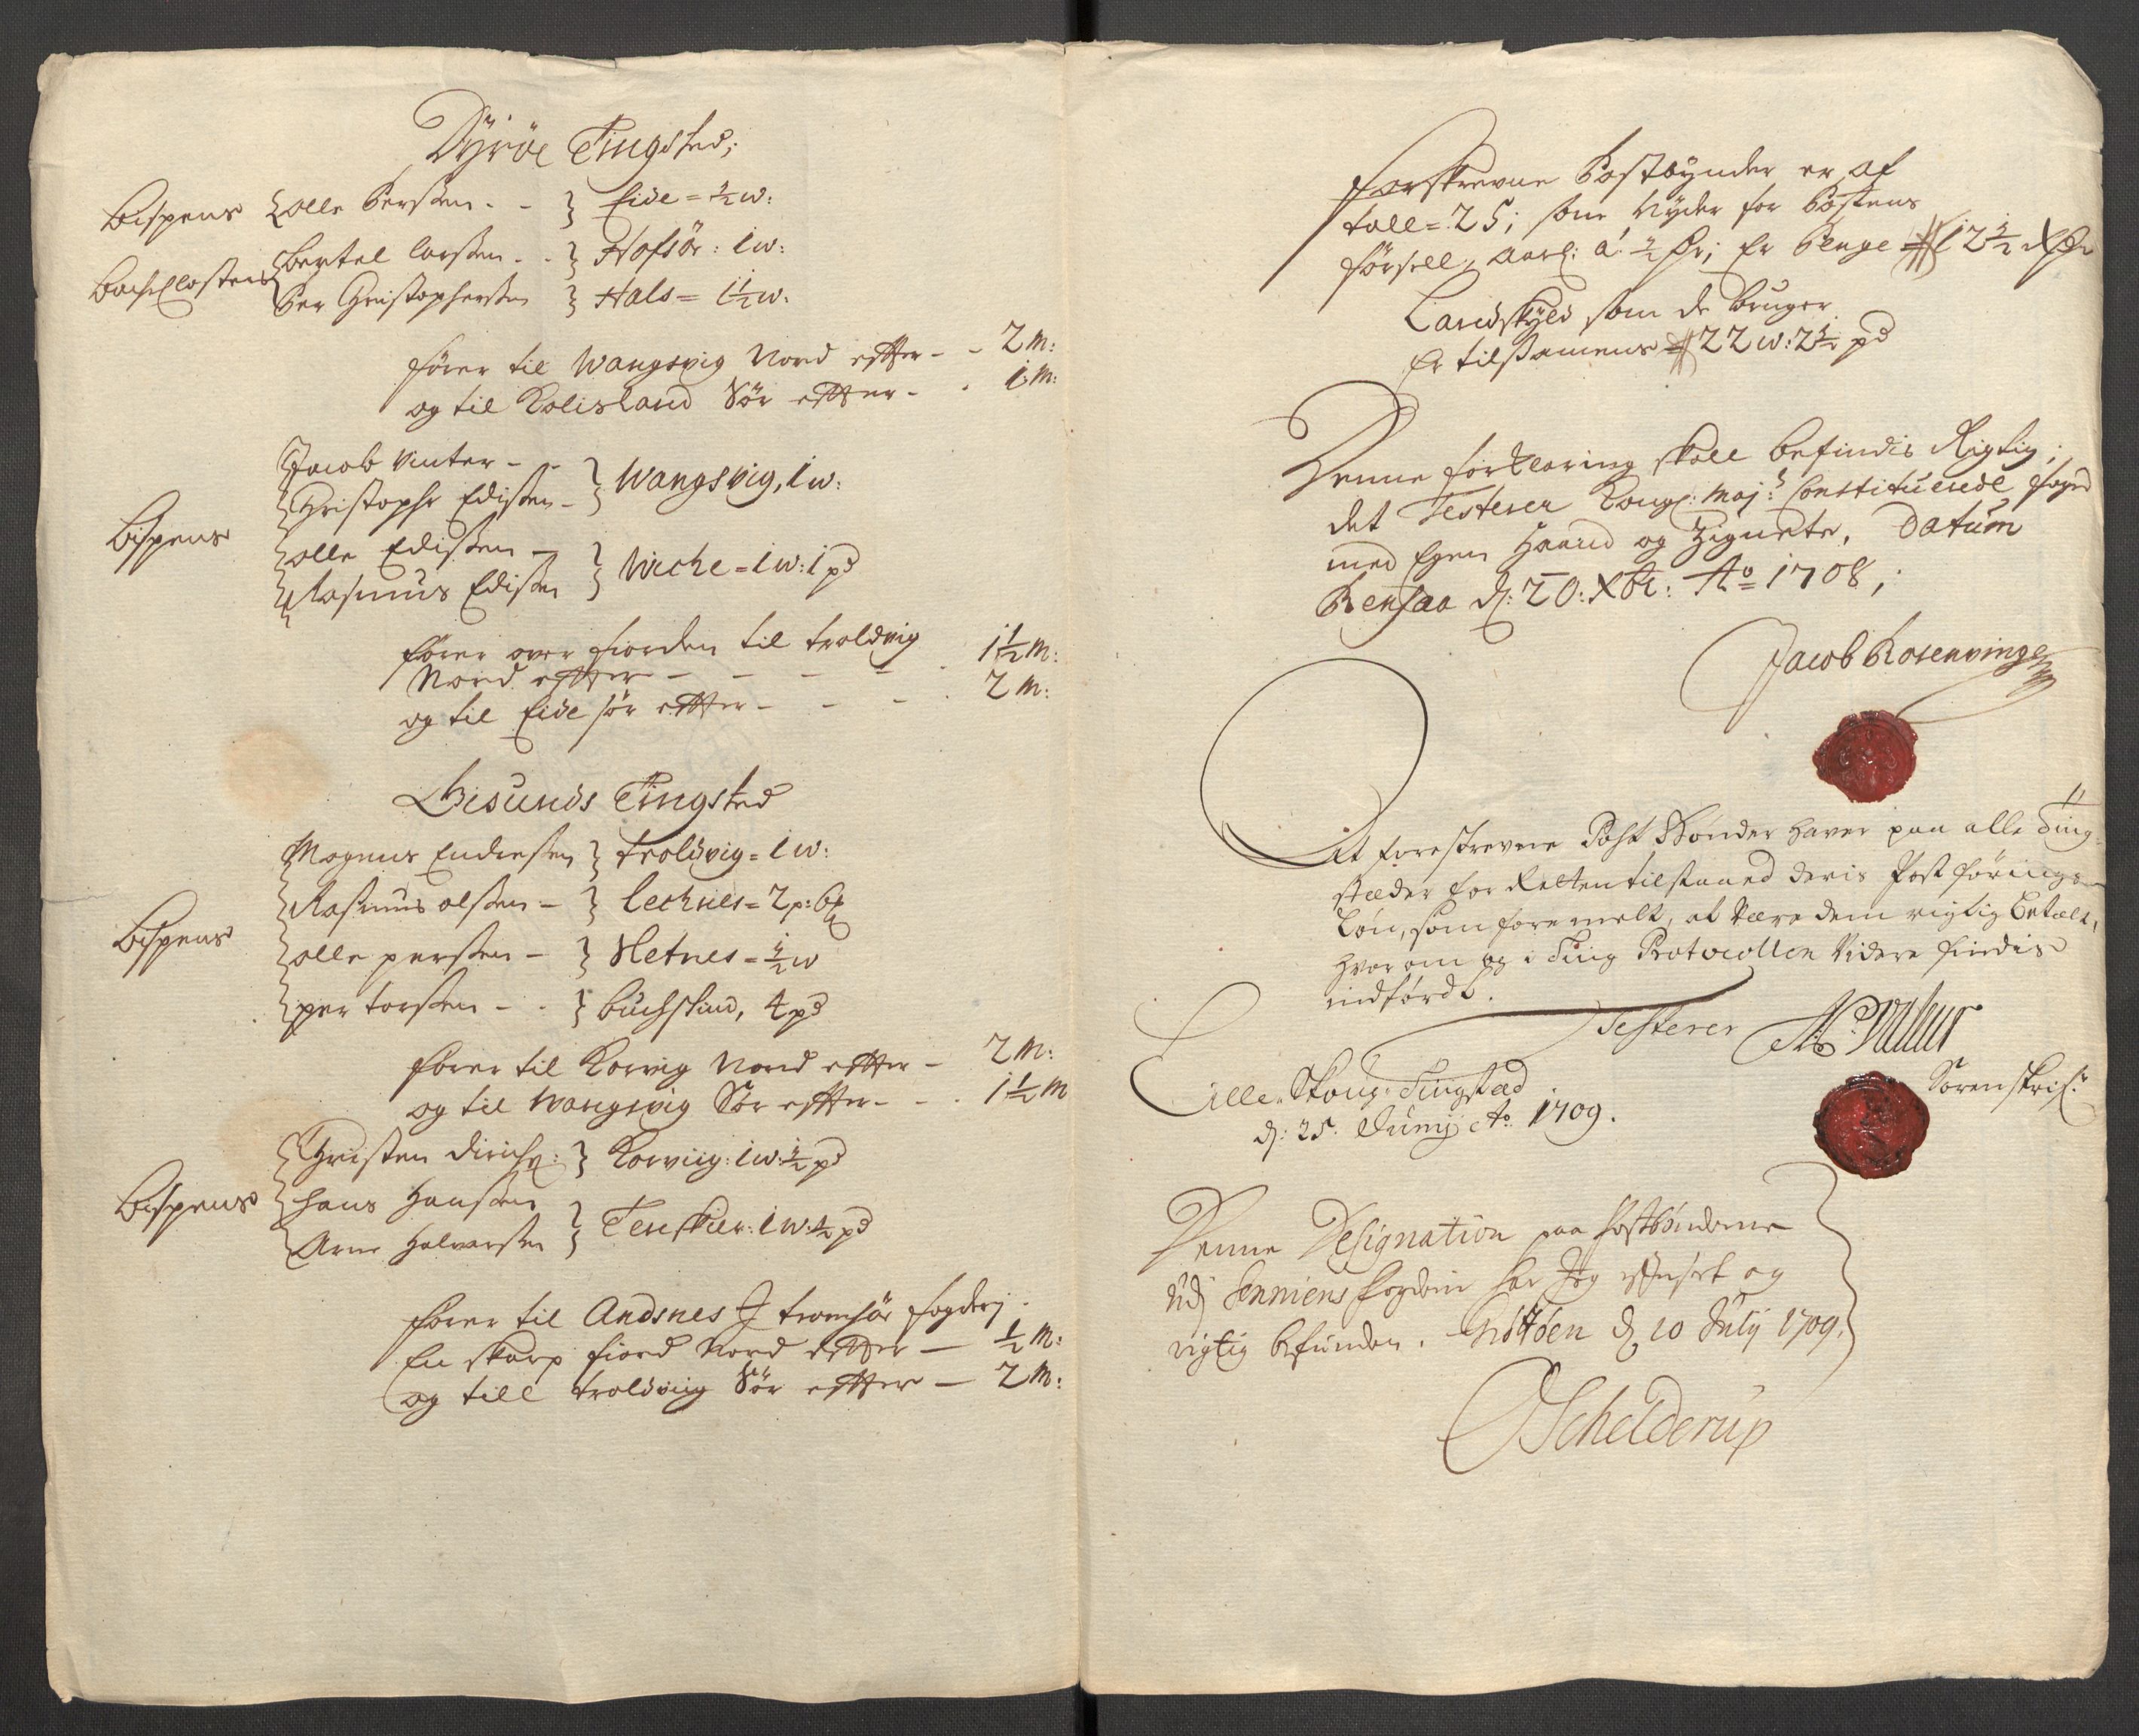 Dyrøe Tingsted;
Bispens Olle Perssen - - Eide = ½ w:
Bachclostens Bertel Larssen - - Hofsør: 1 w:
Per Christopherssen Hals = 1½ w.
fører til Wangsvig Nord effter - - 2 M:
og til Rolisland Sør effter - - 1 M:
Jacob Vinter - -
Christopfr Edissen - Wangsvig, 1 w:
Bispens
Olle Edissen -
Rasmus Edissen Wiche = 1 w: 1 pd
fører over fiorden til troldvig
Nord effter - - - - 1½ M:
og til Eide sør effter - - - 2 M:
Gisunds Tingsted
Mogens Endressen troldvig = 1 w:
Rasmus olssen - Lechnes = 2 p: 6
Bispens
olle perssen - Hetnes = ½ w
per torssen - - buchskind, 4 pd
fører til Korvig Nord effter - 2 M:
og til Wangsvig Sør effter - - 1½ M
Christen Dirichs: Korviig: 1 w: ½ pd
Bispens hans Hanssen
Arne Halvorssen Tenskier: 1 w: ½ pd
fører til Andsnes J tromsør fogderj
En skarp fiord Nord effter - ½ M:
og till troldviig Sør effter - 2 M:
Forskrevne Postbynder er af
tall = 25; som Nyder for Postens
førsell, aarl: à ½ Dr; Er Penge 12½ Dr
Landskyld som de bruger
Er tilsamens 22 w: 2½ pd
Denne forklaring skall befindis Rigtig;
det Testerer Kongl: Maj:s Constituerede foged
med Egen Haand og Zignete, Datum
Rensaa d: 20: Xbr: Ao 1708;
Jacob Rosenvinge
At forestrevne Post Bønder haver paa alle Ting-
stæder for Retten tilstaaed deris Post førings
Løn, som foremelt, at være dem rigtig betalt,
hvor om og i Ting Protocollen videre findis
indført.
Testerer
Sorenskrifr
Lille Skoug Tingstæd
d: 25. Junij Ao 1709.
Denne Designation paa Postbønderne
udj Senniens fogderie har Jeg effterset og
rigtig befunden. Grøttøen d 10 July 1709.
Schelderup